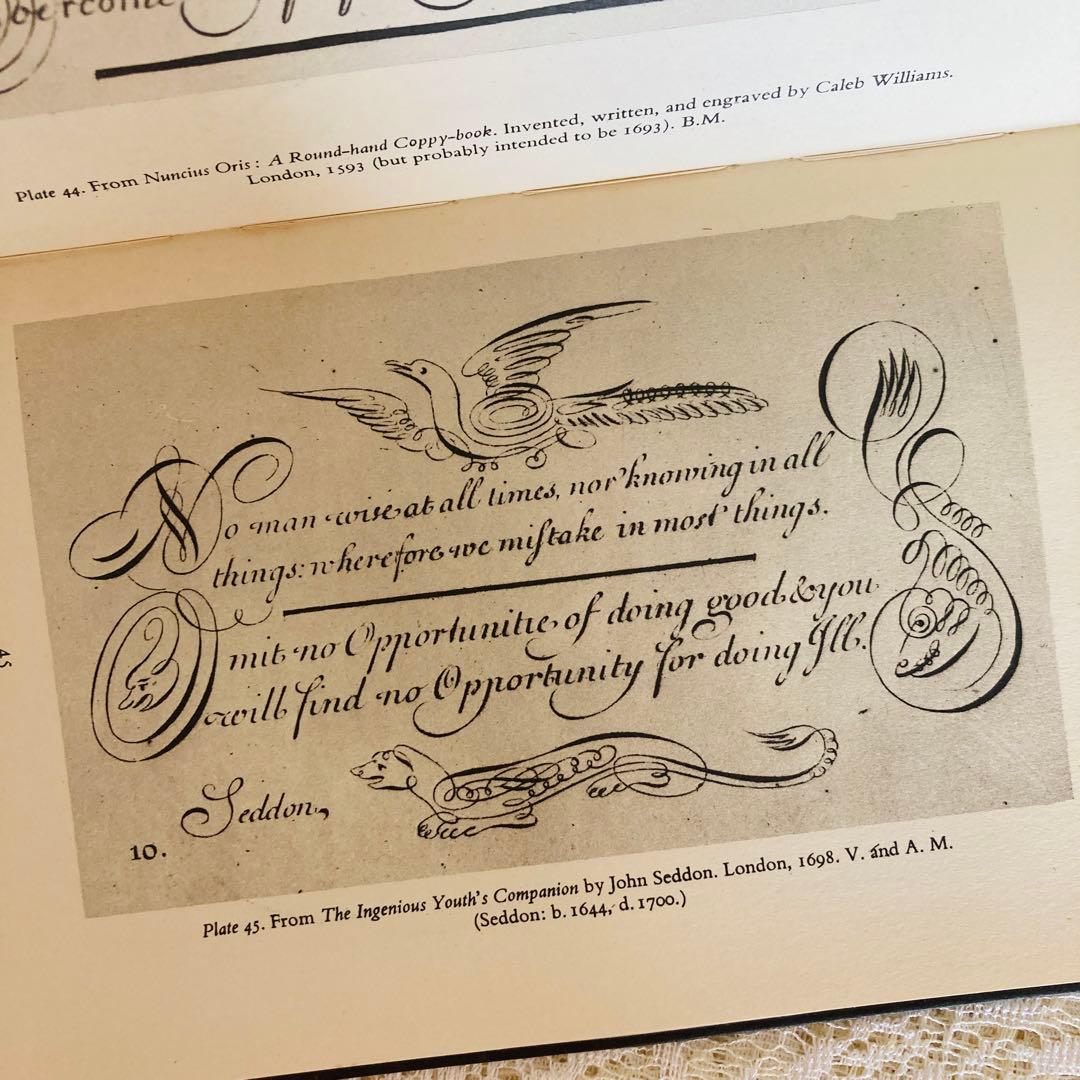 Plate 44. From Nuncius Oris: A Round-hand Coppy-book. Invented, written, and engraved by Caleb Williams.
London, 1593 (but probably intended to be 1693). B.M.
No man wise at all times, nor knowing in all
things: wherefore we mistake in most things.
Omit no Opportunitie of doing good & you
will find no Opportunity for doing Ill.
Seddon,
10.
45
Plate 45. From The Ingenious Youth's Companion by John Seddon. London, 1698. V. and A. M.
(Seddon: b. 1644, d. 1700.)